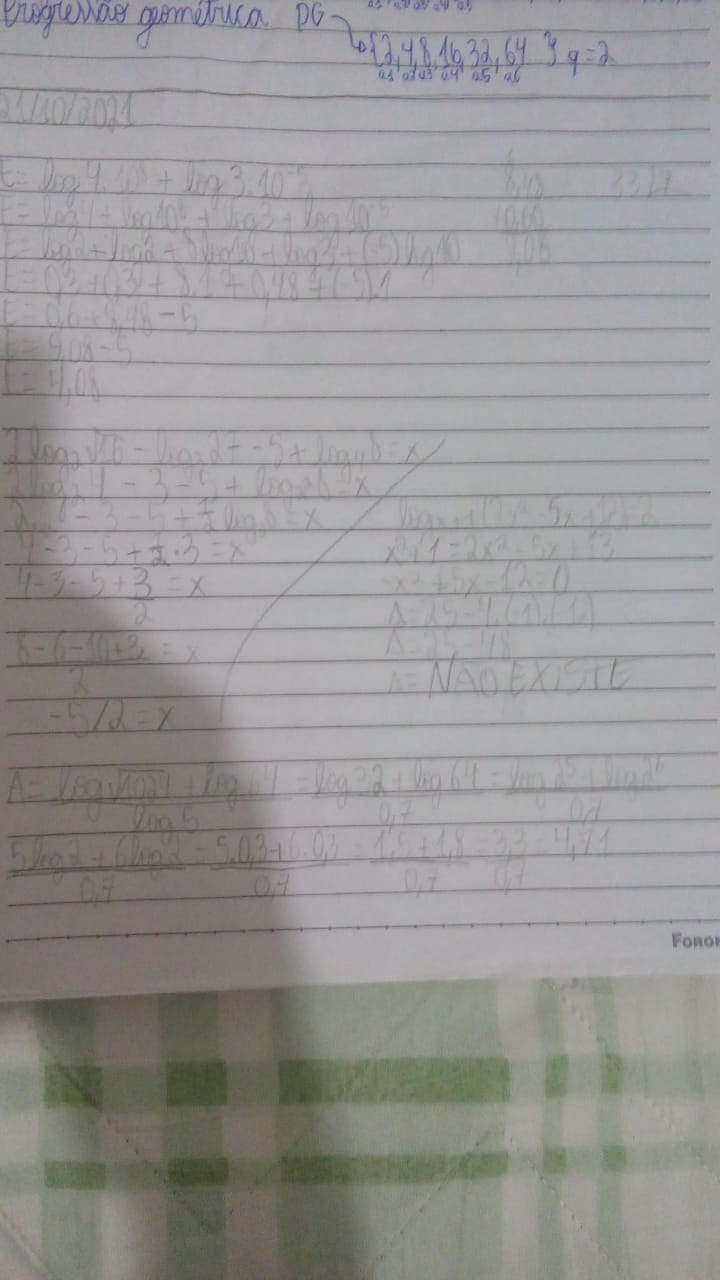 Progressão geométrica PG
{2,4,8,16,32,64} q=2
a1 a2 a3 a4 a5 a6
21/10/2021
E= log 4.10⁸ + log 3.10⁻⁵
E= log4 + log10⁸ + log3 + log10⁻⁵
E= log2 + log2 + 8log10 + log3 + (-5)log10
E= 0,3 + 0,3 + 8.1 + 0,48 + (-5)1
E= 0,6 + 8,48 - 5
E= 9,08 - 5
E= 4,08
8,48
+0,60
9,08
2log₂√16 - log₃27 - 5 + log₄8 = x
2log₂4 - 3 - 5 + = x
- 3 - 5 + 1/2 log₂8 = x
4 - 3 - 5 + 1/2 . 3 = x
4 - 3 - 5 + 3/2 = x
8 - 6 - 10 + 3 / 2 = x
-5/2 = x
x²+1 = 2x² - 5x + 13
-x² + 5x - 12 = 0
Δ = 25 - 4.(-1).(-12)
Δ = 25 - 48
Δ = NÃO EXISTE
A = log√1024 + log64 / log5 = log32 + log64 / 0,7 = log2⁵ + log2⁶ / 0,7
5log2 + 6log2 / 0,7 = 5.0,3 + 6.0,3 / 0,7 = 1,5 + 1,8 / 0,7 = 3,3 / 0,7 = 4,71